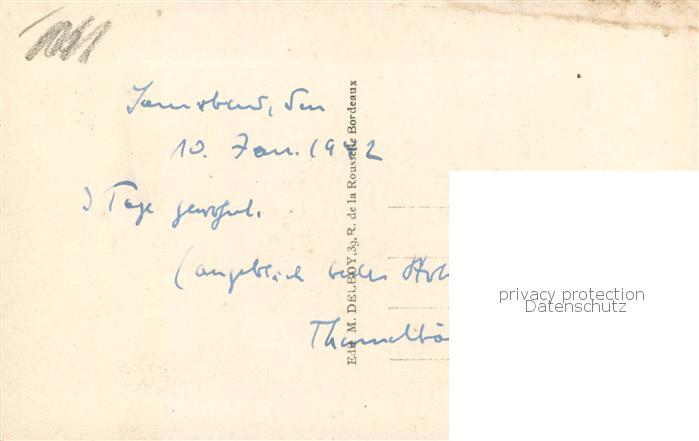 Sonnabend, den
10. Jan. 1942
3 Tage gewohnt.
(angeblich
Edit. M. DELBOY, 39, R. de la Rousselle Bordeaux
privacy protection
Datenschutz